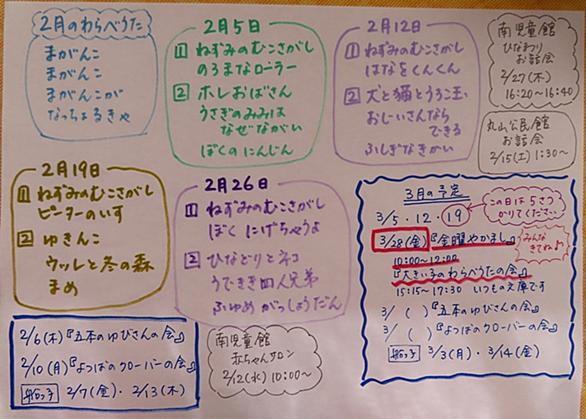 2月のわらべうた
まがんこ
まがんこ
まがんこが
なっちょるきゃ
2月5日
1 ねずみのむこさがし
のろまなローラー
2 ホレおばさん
うさぎのみみは
なぜながい
ぼくのにんじん
2月12日
1 ねずみのむこさがし
はなをくんくん
2 犬と猫とうろこ玉
おじいさんなら
できる
ふしぎなきかい
南児童館
ひなまつり
お話会
2/27(木)
16:20~16:40
丸山公民館
お話会
2/15(土) 1:30~
2月19日
1 ねずみのむこさがし
ピーターのいす
2 ゆきんこ
ウッレと冬の森
まめ
2月26日
1 ねずみのむこさがし
ぼく にげちゃうよ
2 ひなどりとネコ
うできき四人兄弟
ふゆめ がっしょうだん
3月の予定
3/5・12・19
この日は5さつ
かりてください
3/28(金)『金曜やかまし』
10:00~12:00
みんな
きてね♪
『大きい子のわらべうたの会』
15:15~17:30 いつもの文庫です
3/ ( )『五本のゆびさんの会』
3/ ( )『よつばのクローバーの会』
船っ子 3/3(月)・3/14(金)
2/6(木)『五本のゆびさんの会』
2/10(月)『よつばのクローバーの会』
船っ子 2/7(金)・2/13(木)
南児童館
赤ちゃんサロン
2/12(水) 10:00~